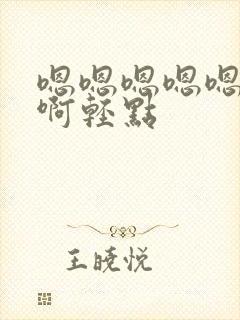 嗯嗯嗯嗯嗯
啊輕點
王曉悅